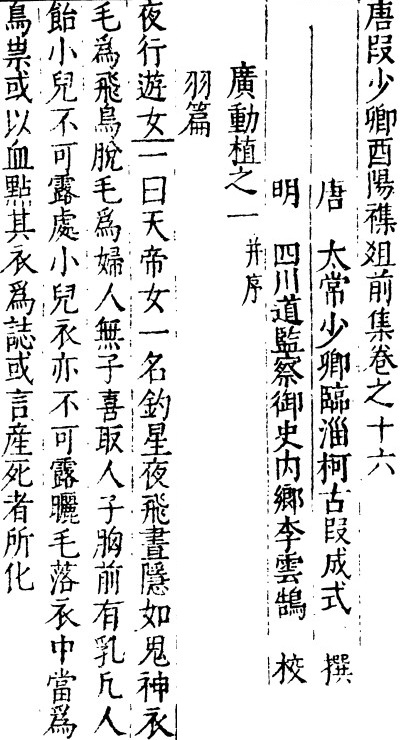 唐段少卿酉陽襍俎前集卷之十六
唐 太常少卿臨淄柯古段成式 撰
明 四川道監察御史内鄉李雲鵠 校
廣動植之一 并序
羽篇
夜行遊女一曰天帝女一名釣星夜飛晝隱如鬼神衣
毛爲飛鳥脫毛爲婦人無子喜取人子胸前有乳凢人
飴小兒不可露處小兒衣亦不可露曬毛落衣中當爲
鳥祟或以血點其衣爲誌或言産死者所化